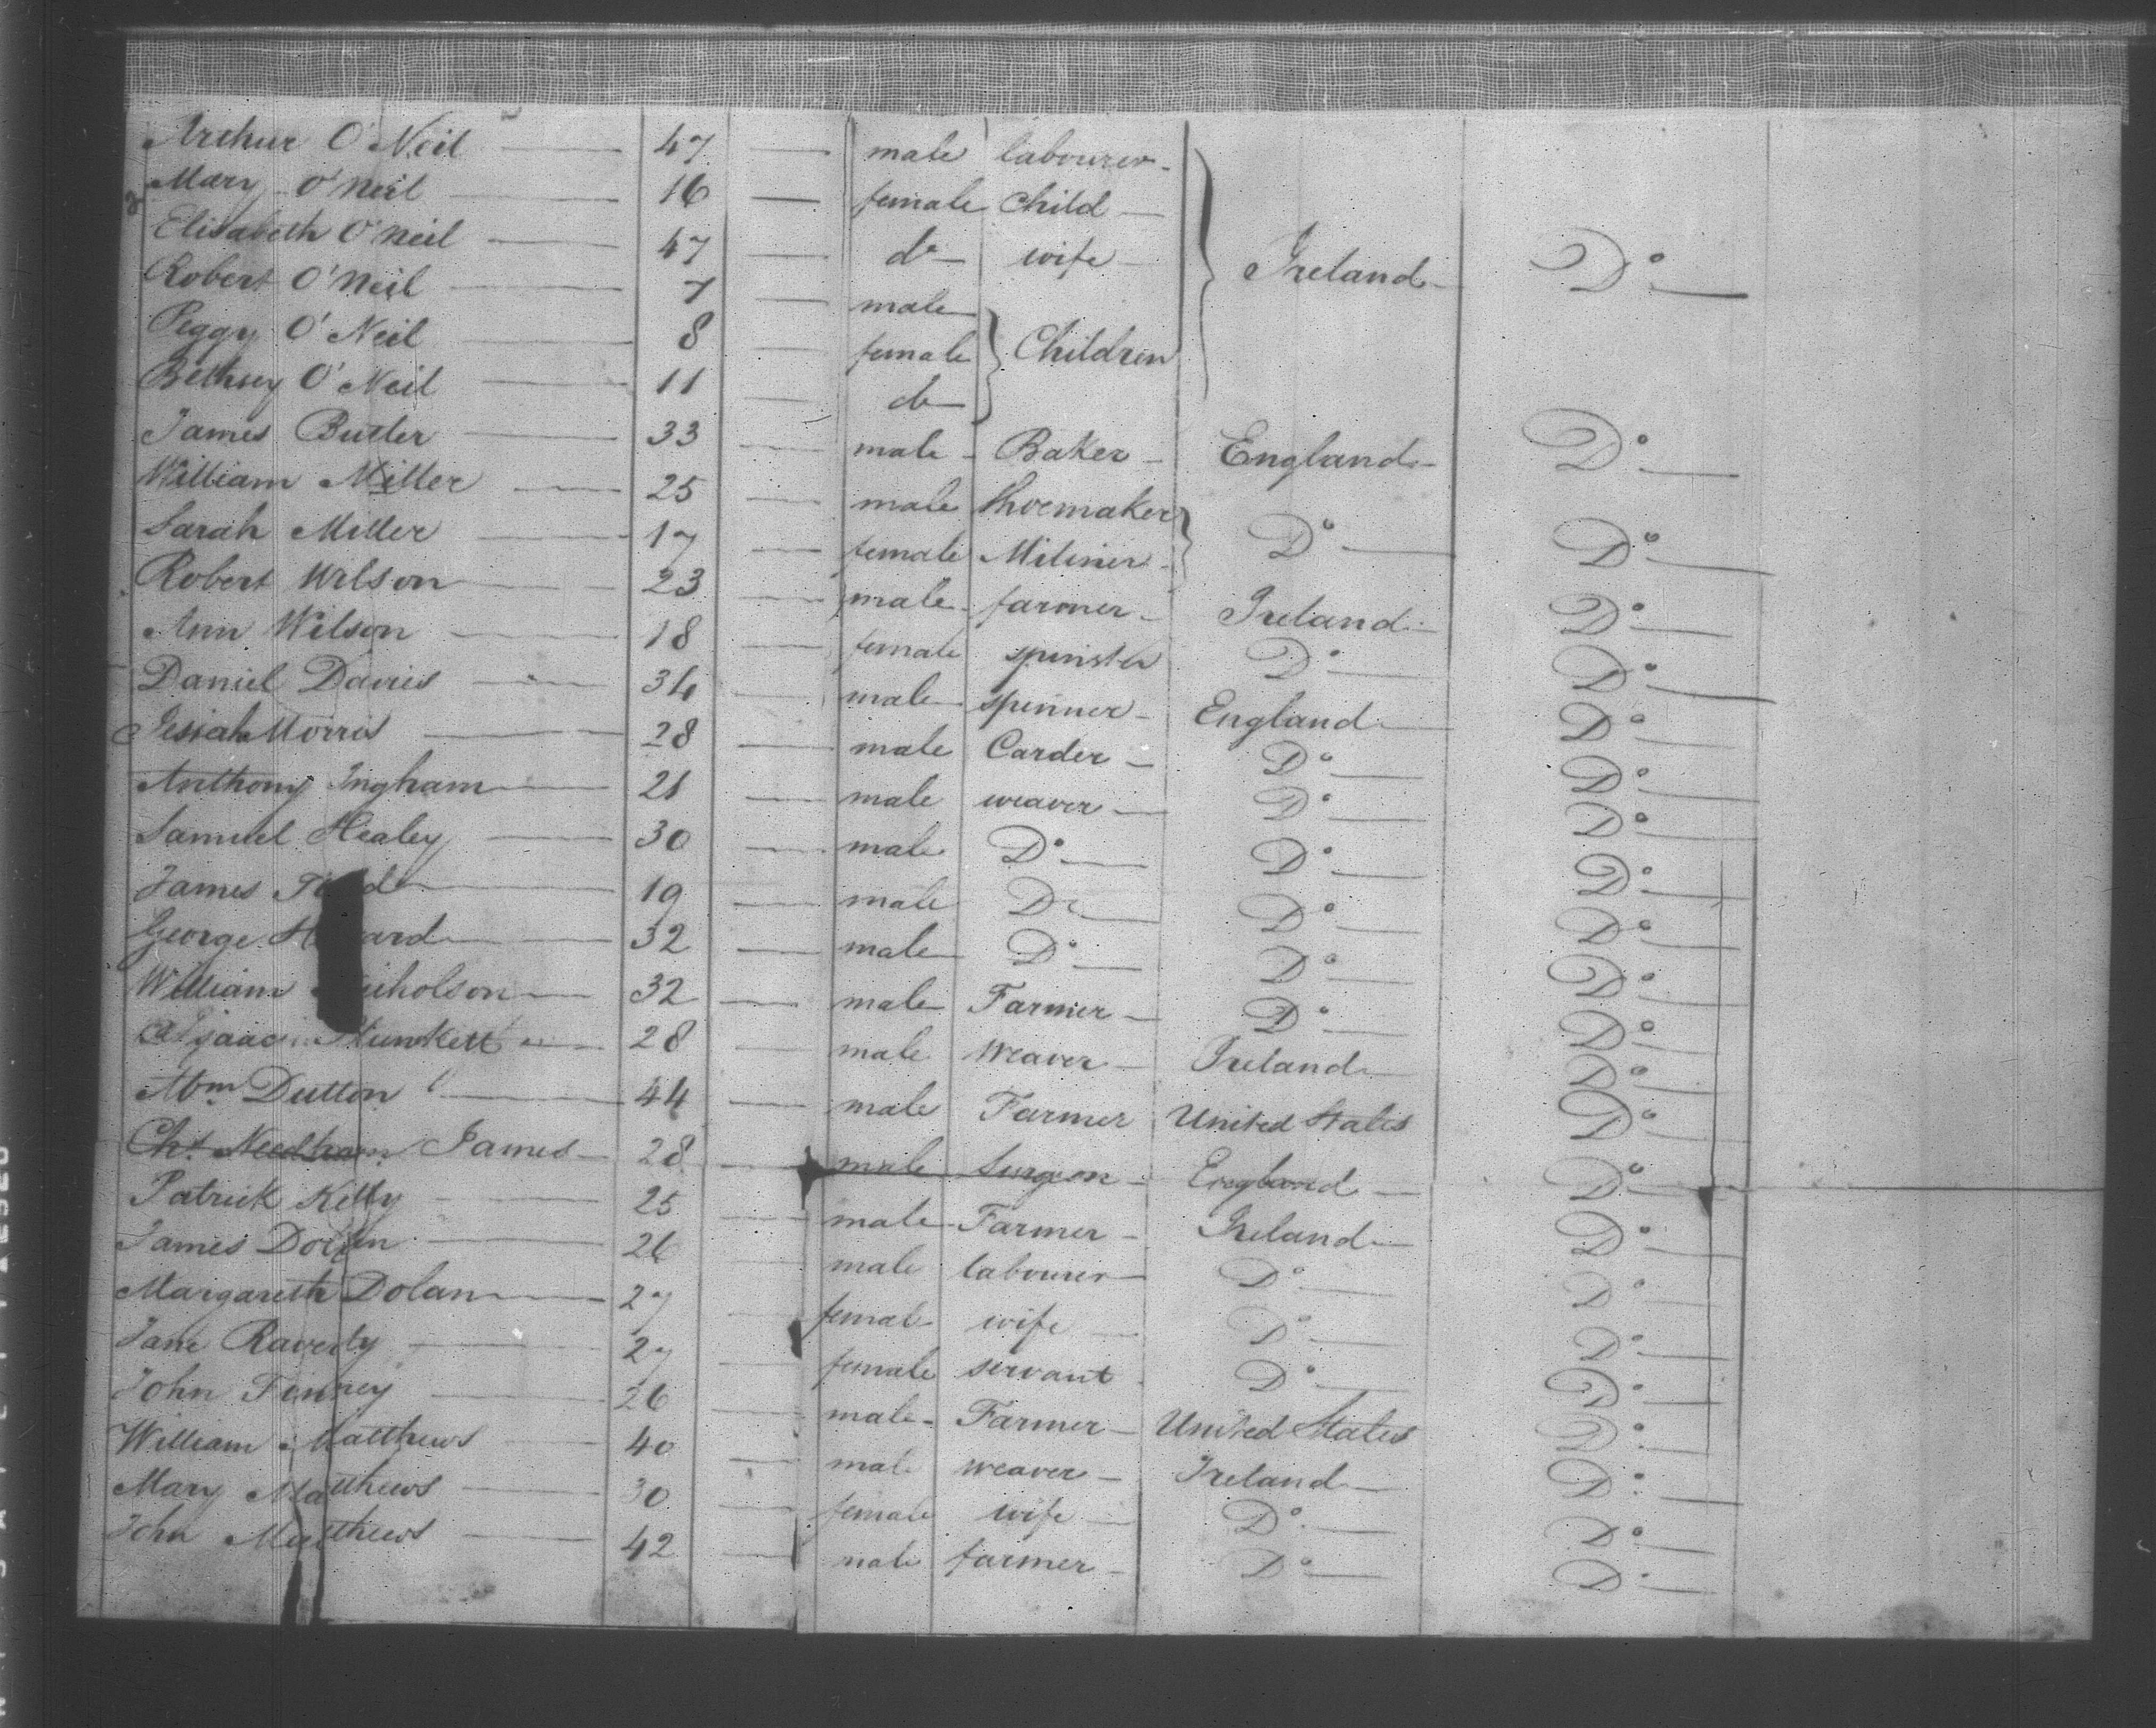 Arthur O'Neil 47 male labourer
Mary O'Neil 16 female Child
Elisabeth O'Neil 47 do wife Ireland Do
Robert O'Neil 7 male
Peggy O'Neil 8 female Children
Bethsey O'Neil 11 do
James Butler 33 male Baker England Do
William Miller 25 male Shoemaker
Sarah Miller 17 female Miliner Do Do
Robert Wilson 23 male farmer Ireland Do
Ann Wilson 18 female spinster Do Do
Daniel Davies 34 male spinner England Do
Morris 28 male Carder Do Do
Anthony Ingham 21 male weaver Do Do
Samuel Healey 30 male Do Do Do
James 19 male Do Do Do
George 32 male Do Do Do
William 32 male Farmer Do Do
Isaac Plunkett 28 male weaver Ireland Do
Wm Dutton 44 male Farmer United States Do
Chs Needham James 28 male Surgeon England Do
Patrick Kelly 25 male Farmer Ireland Do
James Dolan 26 male labourer Do Do
Margareth Dolan 27 female wife Do Do
Jane Raverty 27 female servant Do Do
John Finney 26 male Farmer United States Do
William Matthews 40 male weaver Ireland Do
Mary Matthews 30 female wife Do Do
John Matthews 42 male farmer Do Do